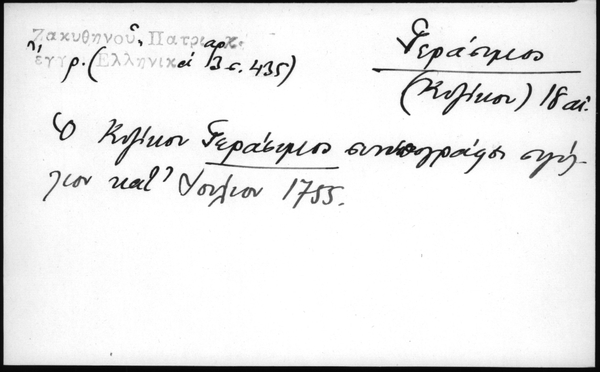 Ζακυθηνοῦ, Πατριαρχ.
ἔγγρ. (Ἑλληνικά 3 σ. 435)
Γεράσιμος
(Κυζίκου) 18 αἰ.
Ὁ Κυζίκου Γεράσιμος συνυπογράφει σιγίλ-
λιον κατ' Ἰούλιον 1755.